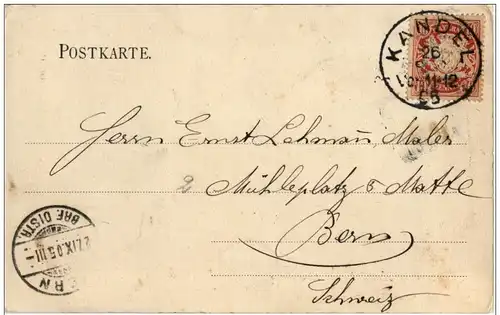 POSTKARTE.
KANDEL
26
V. 11-12
05
Herrn Ernst Lehmann, Maler
2
Mühleplatz Matte
Bern
Schweiz
BERN
BRF. DISTR.
27.IX.05.III